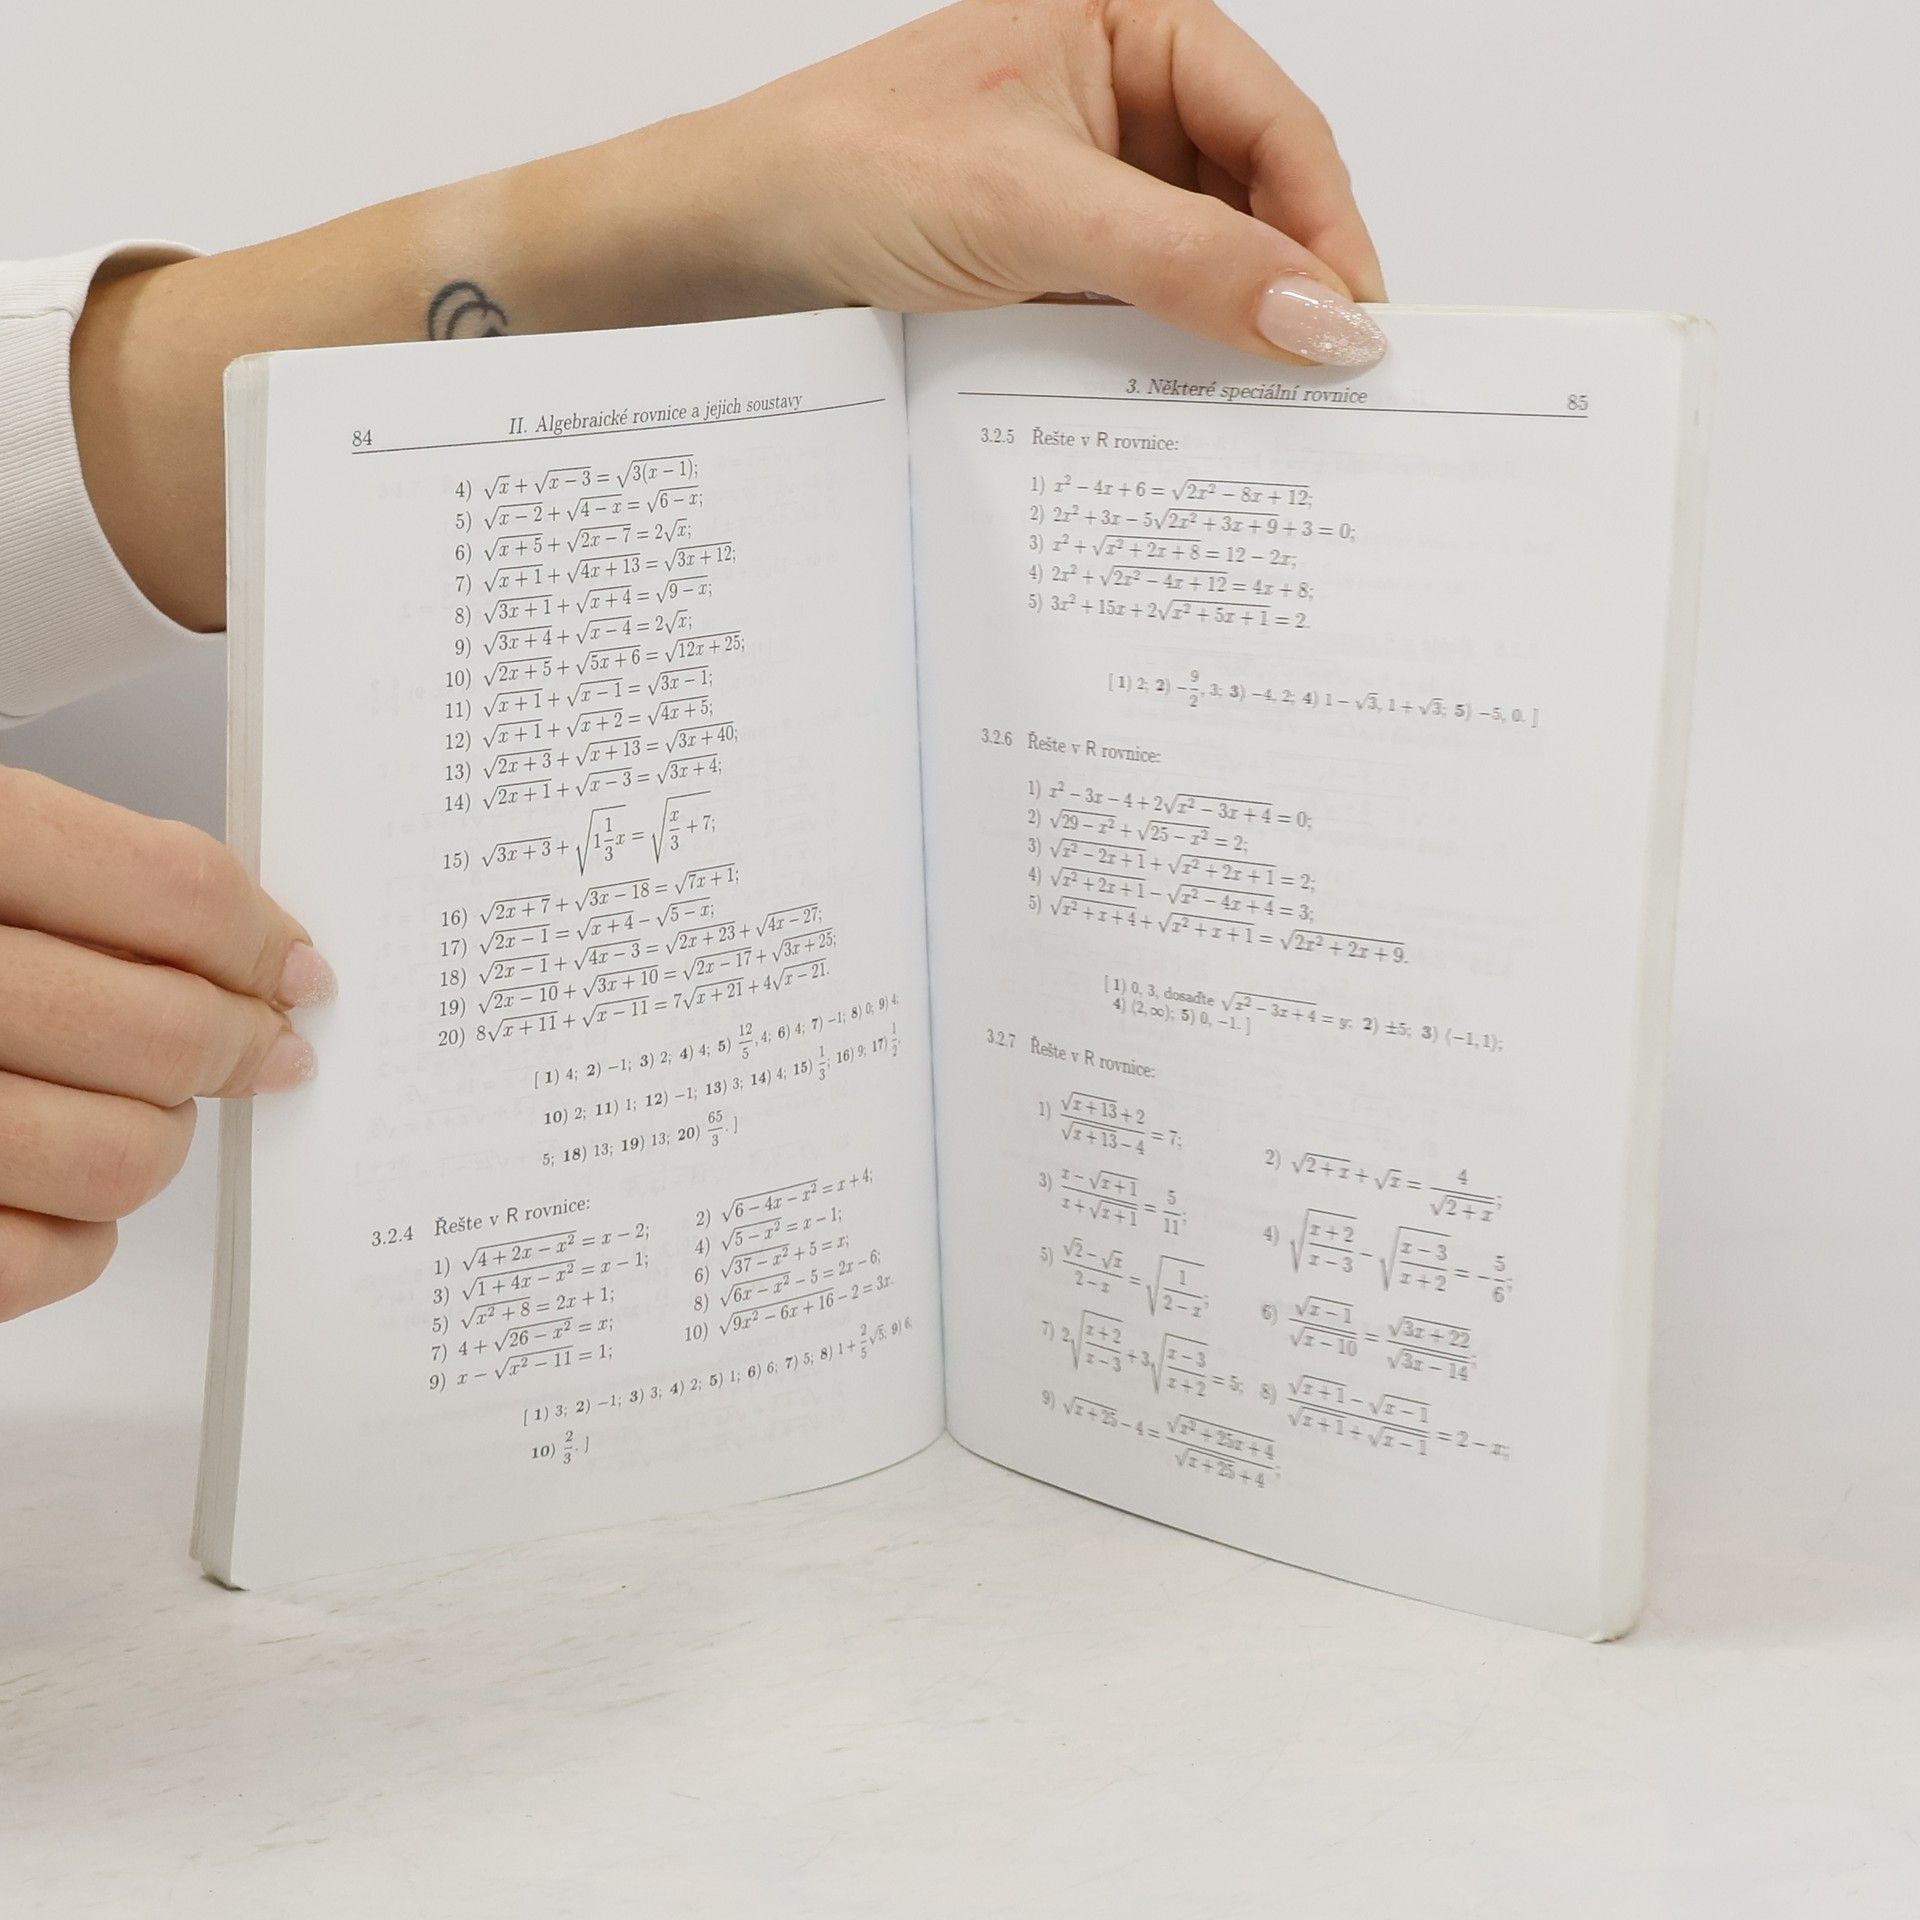 84 II. Algebraické rovnice a jejich soustavy
4) √x + √(x − 3) = √(3(x − 1));
5) √(x − 2) + √(4 − x) = √(6 − x);
6) √(x + 5) + √(2x − 7) = 2√x;
7) √(x + 1) + √(4x + 13) = √(3x + 12);
8) √(3x + 1) + √(x + 4) = √(9 − x);
9) √(3x + 4) + √(x − 4) = 2√x;
10) √(2x + 5) + √(5x + 6) = √(12x + 25);
11) √(x + 1) + √(x − 1) = √(3x − 1);
12) √(x + 1) + √(x + 2) = √(4x + 5);
13) √(2x + 3) + √(x + 13) = √(3x + 40);
14) √(2x + 1) + √(x − 3) = √(3x + 4);
15) √(3x + 3) + √(1 1/3 x) = √(x/3 + 7);
16) √(2x + 7) + √(3x − 18) = √(7x + 1);
17) √(2x − 1) = √(x + 4) − √(5 − x);
18) √(2x − 1) + √(4x − 3) = √(2x + 23) + √(4x − 27);
19) √(2x − 10) + √(3x + 10) = √(2x − 17) + √(3x + 25);
20) 8√(x + 11) + √(x − 11) = 7√(x + 21) + 4√(x − 21).
[ 1) 4; 2) −1; 3) 2; 4) 4; 5) 12/5, 4; 6) 4; 7) −1; 8) 0; 9) 4;
10) 2; 11) 1; 12) −1; 13) 3; 14) 4; 15) 1/3; 16) 9; 17) 1/2,
5; 18) 13; 19) 13; 20) 65/3. ]
3.2.4 Řešte v R rovnice:
1) √(4 + 2x − x²) = x − 2; 2) √(6 − 4x − x²) = x + 4;
3) √(1 + 4x − x²) = x − 1; 4) √(5 − x²) = x − 1;
5) √(x² + 8) = 2x + 1; 6) √(37 − x²) + 5 = x;
7) 4 + √(26 − x²) = x; 8) √(6x − x²) − 5 = 2x − 6;
9) x − √(x² − 11) = 1; 10) √(9x² − 6x + 16) − 2 = 3x.
[ 1) 3; 2) −1; 3) 3; 4) 2; 5) 1; 6) 6; 7) 5; 8) 1 + 2/5 √5; 9) 6;
10) 2/3. ]
3. Některé speciální rovnice 85
3.2.5 Řešte v R rovnice:
1) x² − 4x + 6 = √(2x² − 8x + 12);
2) 2x² + 3x − 5√(2x² + 3x + 9) + 3 = 0;
3) x² + √(x² + 2x + 8) = 12 − 2x;
4) 2x² + √(2x² − 4x + 12) = 4x + 8;
5) 3x² + 15x + 2√(x² + 5x + 1) = 2.
[ 1) 2; 2) −9/2, 3; 3) −4, 2; 4) 1 − √3, 1 + √3; 5) −5, 0. ]
3.2.6 Řešte v R rovnice:
1) x² − 3x − 4 + 2√(x² − 3x + 4) = 0;
2) √(29 − x²) + √(25 − x²) = 2;
3) √(x² − 2x + 1) + √(x² + 2x + 1) = 2;
4) √(x² + 2x + 1) − √(x² − 4x + 4) = 3;
5) √(x² + x + 4) + √(x² + x + 1) = √(2x² + 2x + 9).
[ 1) 0, 3, dosaďte √(x² − 3x + 4) = y; 2) ±5; 3) ⟨−1, 1⟩;
4) ⟨2, ∞); 5) 0, −1. ]
3.2.7 Řešte v R rovnice:
1) (√(x + 13) + 2)/(√(x + 13) − 4) = 7; 2) √(2 + x) + √x = 4/√(2 + x);
3) (x − √(x + 1))/(x + √(x + 1)) = 5/11; 4) √((x + 2)/(x − 3)) − √((x − 3)/(x + 2)) = −5/6;
5) (√2 − √x)/(2 − x) = √(1/(2 − x)); 6) √(x − 1)/√(x − 10) = √(3x + 22)/√(3x − 14);
7) 2√((x + 2)/(x − 3)) + 3√((x − 3)/(x + 2)) = 5; 8) (√(x + 1) − √(x − 1))/(√(x + 1) + √(x − 1)) = 2 − x;
9) √(x + 25) − 4 = √(x² + 25x + 4)/(√(x + 25) + 4);